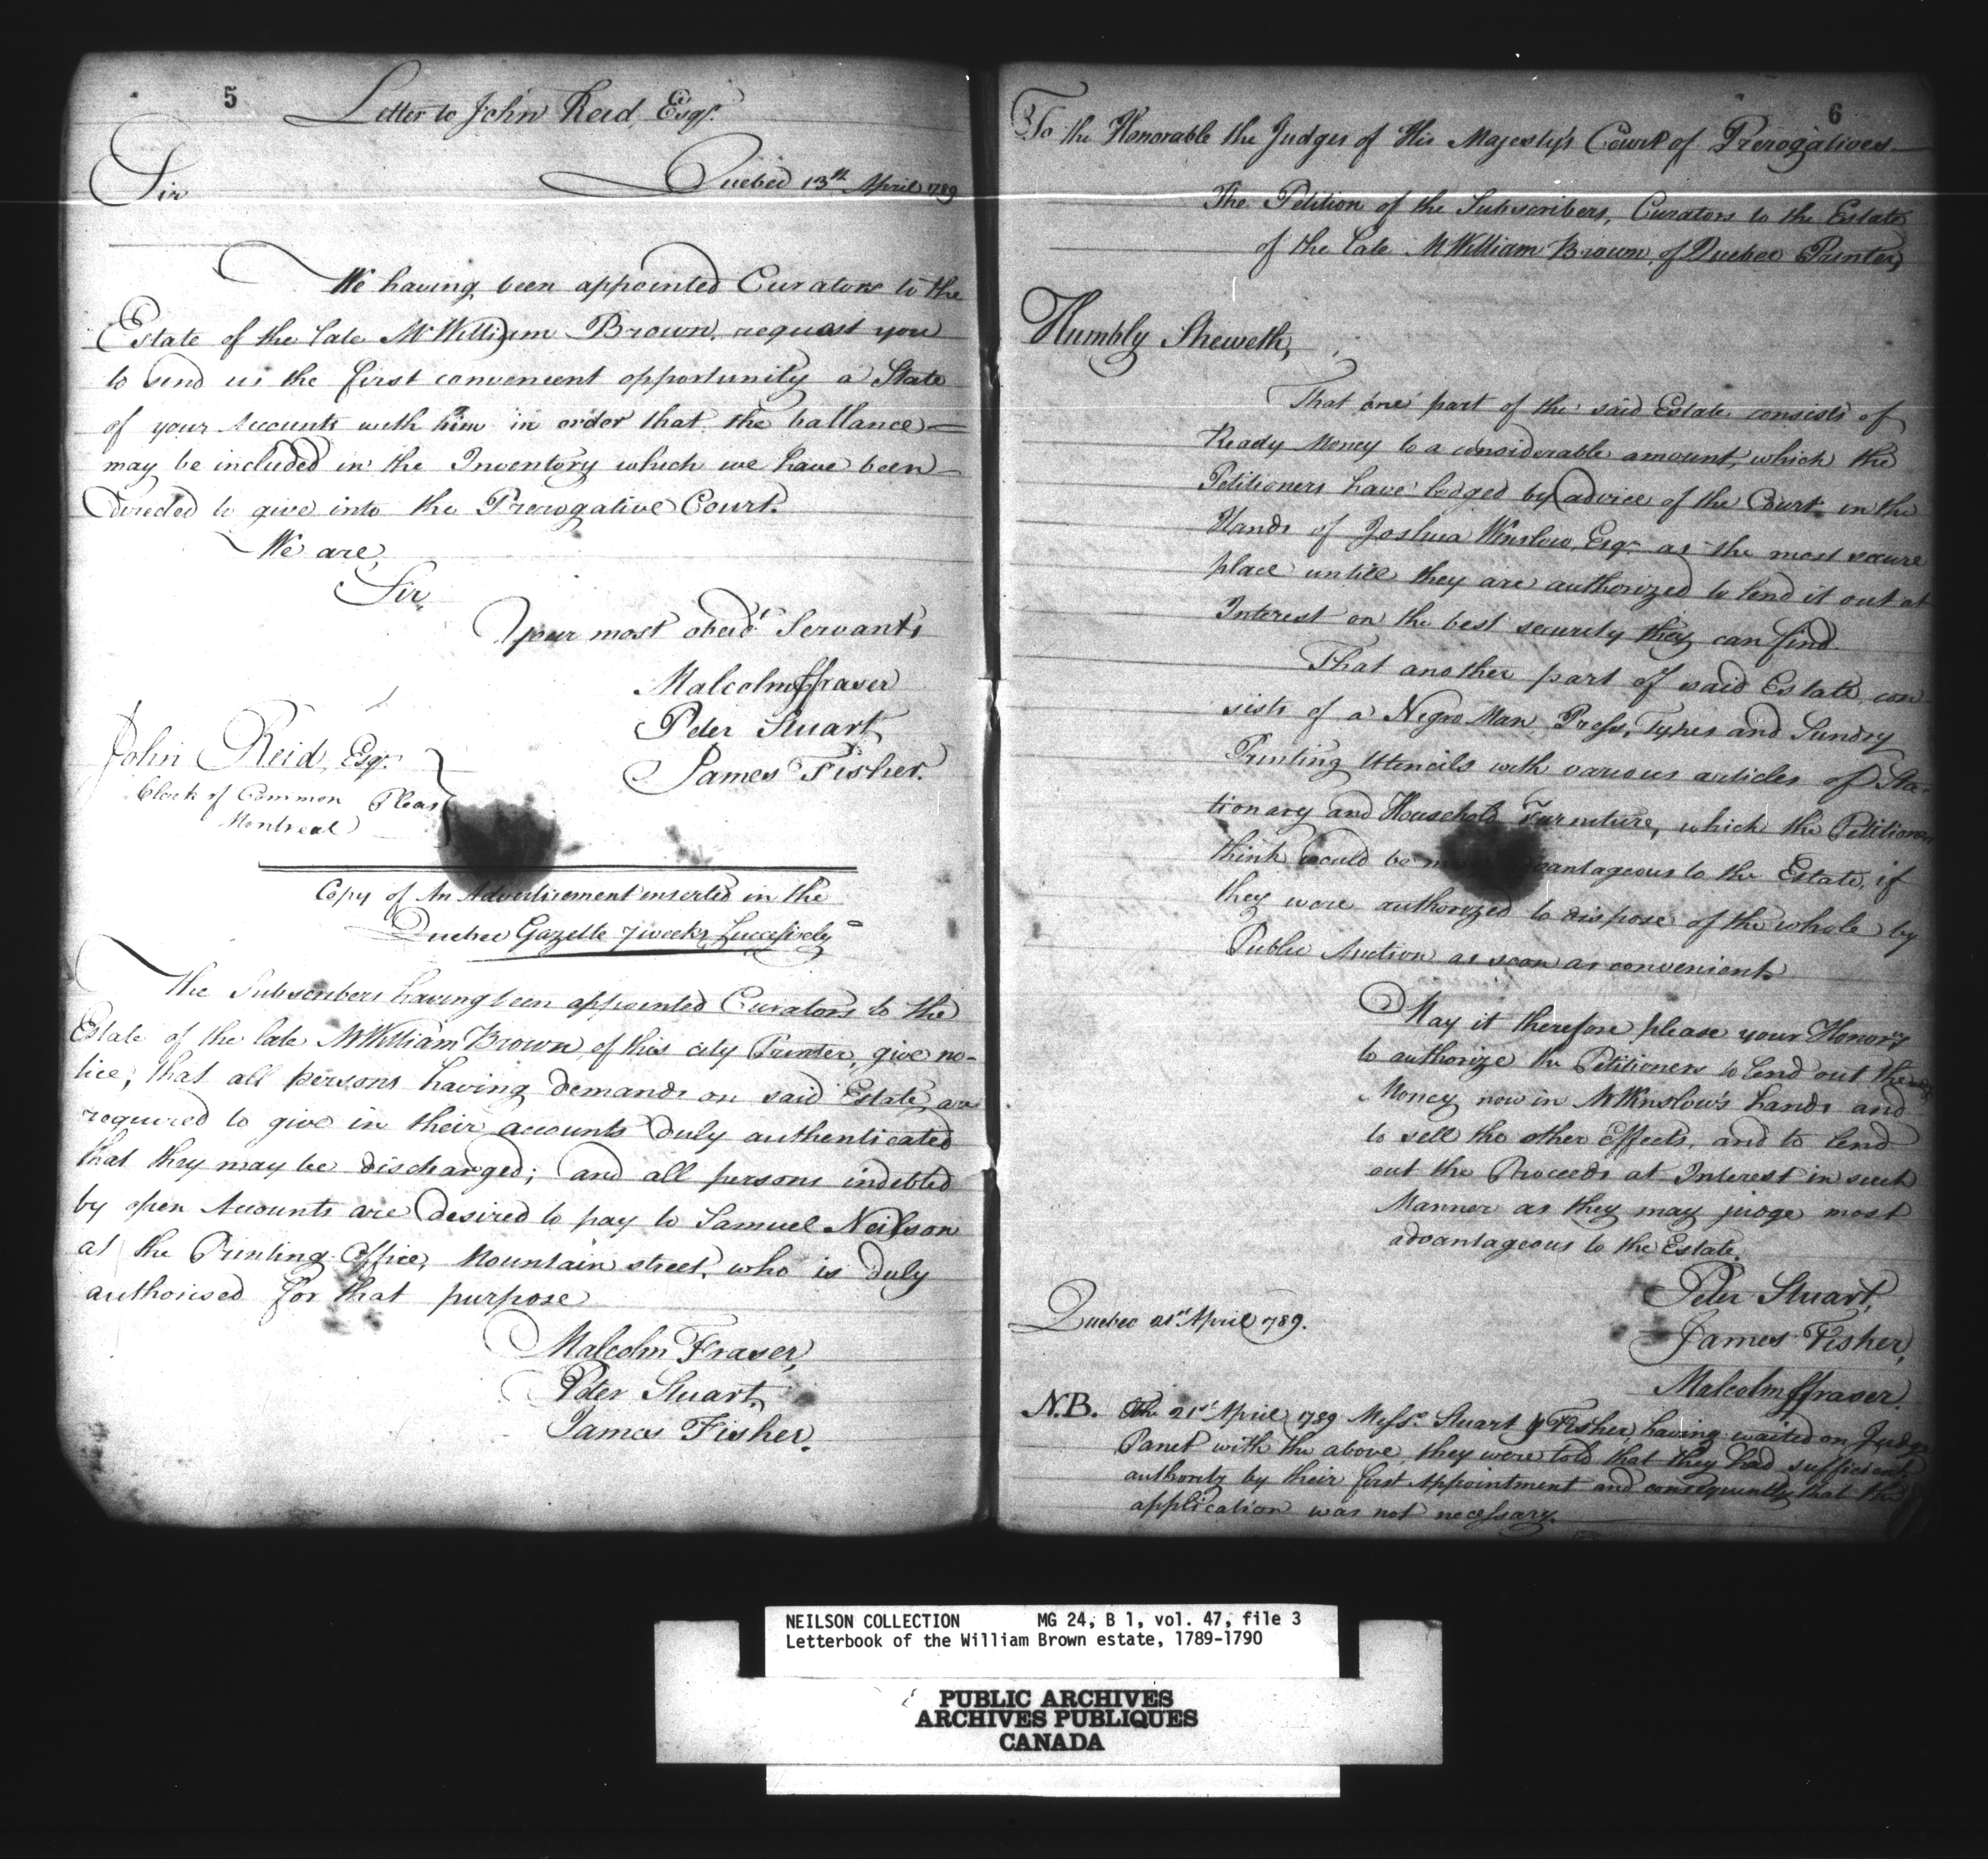 5
Letter to John Reid, Esqr.
Quebec 13th April 1789
Sir
We having been appointed Curators to the
Estate of the late Mr William Brown, request you
to send us the first convenient opportunity a State
of your Accounts with him in order that the ballance
may be included in the Inventory which we have been
directed to give into the Prerogative Court.
We are,
Sir,
Your most obedt Servants
Malcolm ffraser
Peter Stuart,
James Fisher.
John Reid, Esqr.
Clerk of Common Pleas
Montreal
Copy of An Advertisement inserted in the
Quebec Gazette 7 weeks Successively
The Subscribers having been appointed Curators to the
Estate of the late Mr William Brown, of this city Printer, give no-
tice, that all persons having demands on said Estate, are
required to give in their accounts duly authenticated
that they may be discharged; and all persons indebted
by open Accounts are desired to pay to Samuel Neilson
at the Printing-Office, Mountain street, who is duly
authorised for that purpose
Malcolm Fraser,
Peter Stuart,
James Fisher.
6
To the Honorable the Judges of His Majesty's Court of Prerogatives
The Petition of the Subscribers, Curators to the Estate
of the late Mr William Brown, of Quebec Printer,
Humbly Sheweth,
That one part of the said Estate consists of
Ready Money to a considerable amount, which the
Petitioners have lodged by advice of the Court in the
Hands of Joshua Winslow, Esqr. as the most secure
place untill they are authorized to lend it out at
Interest on the best security they can find.
That another part of said Estate con
sists of a Negro Man, Press, Types and Sundry
Printing Utencils with various articles of Sta-
tionary and Household Furniture, which the Petitioners
think would be advantageous to the Estate, if
they were authorized to dispose of the whole by
Public Auction as soon as convenient.
May it therefore please your Honors
to authorize the Petitioners to lend out the
Money now in Mr Winslow's hands and
to sell the other Effects, and to lend
out the Proceeds at Interest in such
Manner as they may judge most
advantageous to the Estate.
Peter Stuart,
Quebec 21st April 1789.
James Fisher,
Malcolm ffraser.
N.B. The 21st April 1789 Messrs. Stuart & Fisher, having waited on Judge
Panet with the above, they were told that they had sufficient
authority by their first Appointment and consequently that the
application was not necessary.
NEILSON COLLECTION MG 24, B 1, vol. 47, file 3
Letterbook of the William Brown estate, 1789-1790
PUBLIC ARCHIVES
ARCHIVES PUBLIQUES
CANADA